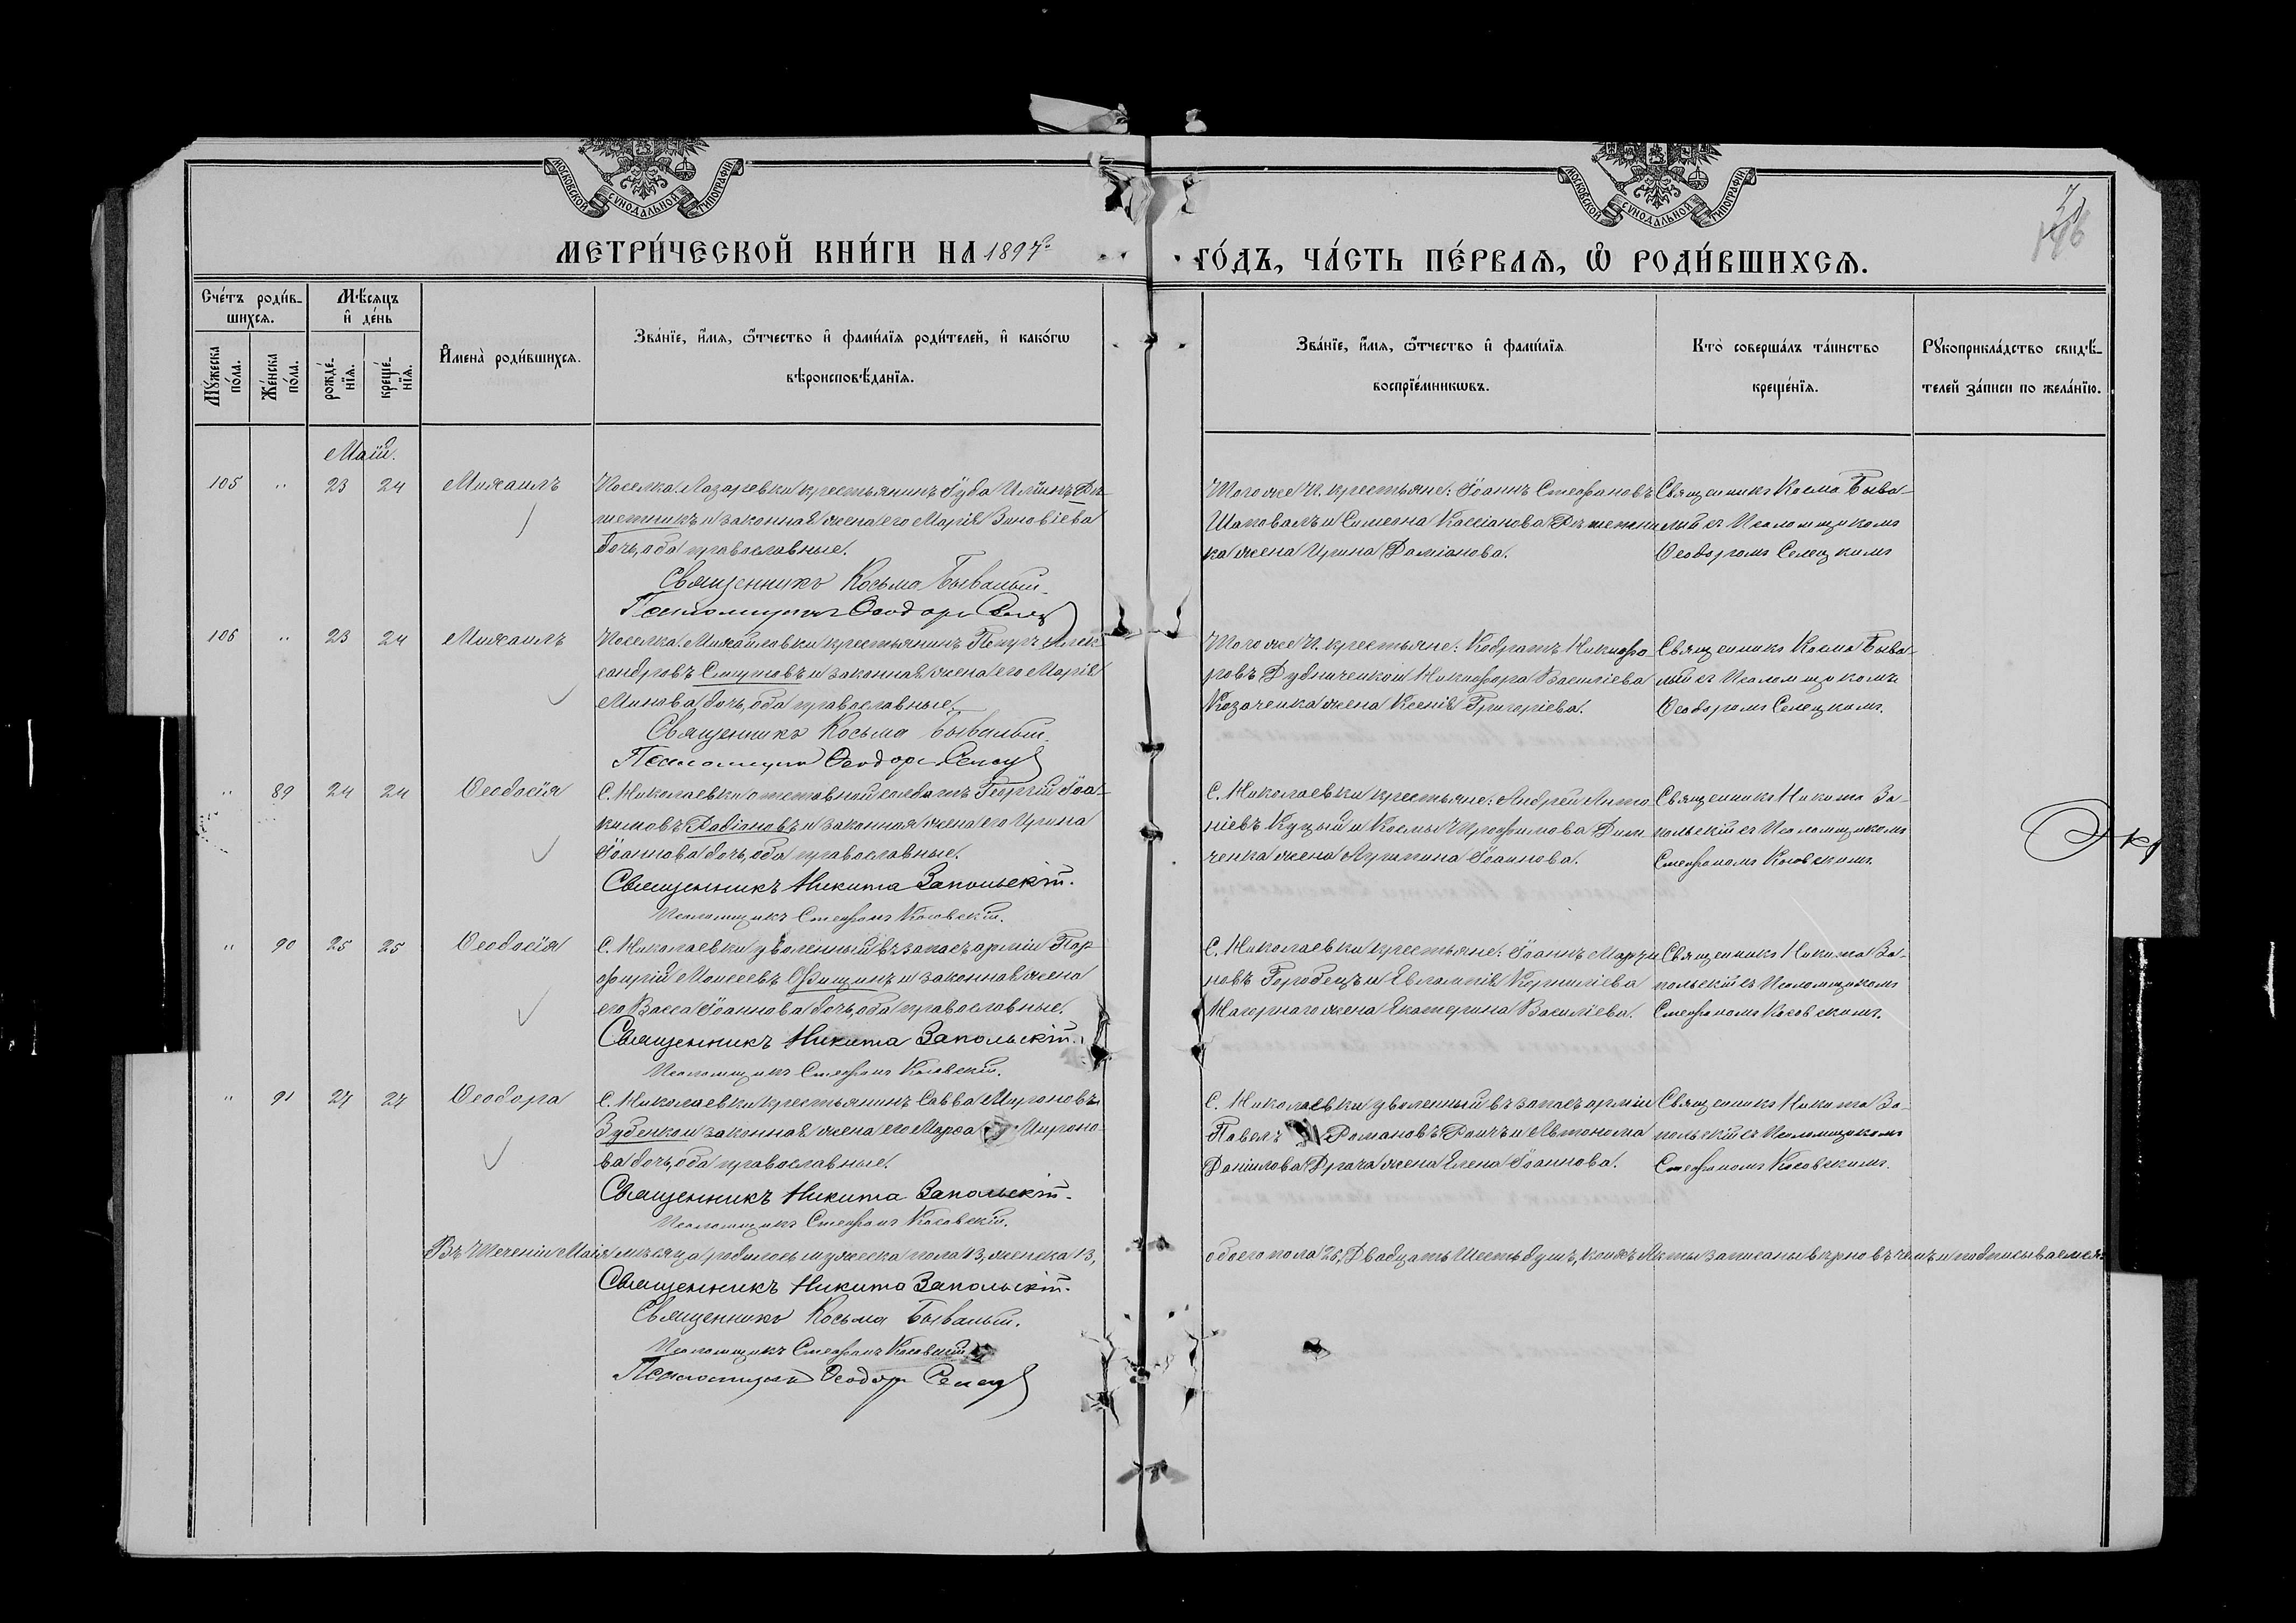 МОСКОВСКОЙ СѴНОДАЛЬНОЙ ТИПОГРАФІИ
МОСКОВСКОЙ СѴНОДАЛЬНОЙ ТИПОГРАФІИ
МЕТРИ́ЧЕСКОЙ КНИ́ГИ НА 1897й
ГО́ДЪ, ЧА́СТЬ ПЕ́РВАѦ, Ѡ҆ РОДИ́ВШИХСѦ.
Сче́тъ роди́в-
шихсѧ.
Мѣ́сѧцъ
и҆ де́нь
Мꙋ́жеска по́ла.
Же́нска по́ла.
рожде́-
нїѧ.
креще́-
нїѧ.
И҆мена̀ роди́вшихсѧ.
Зва́нїе, и҆́мѧ, ѻ҆́тчество и҆ фами́лїѧ роди́телей, и҆ како́гѡ
вѣроисповѣ́данїѧ.
Зва́нїе, и҆́мѧ, ѻ҆́тчество и҆ фами́лїѧ
воспрїе́мникѡвъ.
Кто̀ соверша́лъ та́инство
креще́нїѧ.
Рꙋкоприкла́дство свидѣ́-
телей за́писи по жела́нїю.
Маій.
105 " 23 24 Михаилъ
Поселка Лазаревки крестьянинъ Іуда Ильинъ Рѣ-
шетникъ и законная жена его Марія Зиновіева
дочь, оба православные.
Священникъ Косьма Бывалый.
Псаломщикъ Ѳеодоръ Селец
Того же П. крестьяне: Іоаннъ Стефановъ
Шаповалъ и Симеона Кассіанова Рѣшетни
ка жена Ирина Даміанова.
Священникъ Косма Быва-
лый съ Псаломщикомъ
Ѳеодоромъ Селецкимъ
106 " 23 24 Михаилъ
Поселка Михайловки крестьянинъ Петръ Алек-
сандровъ Смутовъ и законная жена его Марія
Минова дочь, оба православные.
Священникъ Косьма Бывалый.
Псаломщикъ Ѳеодоръ Селец
Того же П. крестьяне: Кодратъ Никифо-
ровъ Дудниченко и Никифора Василіева
Козаченка жена Ксенія Григоріева.
Священникъ Косма Быва-
лый съ Псаломщикомъ
Ѳеодоромъ Селецкимъ.
" 89 24 24 Ѳеодосія
С. Николаевки отставной солдатъ Георгій Іоа-
кимовъ Радіоновъ и законная жена его Ирина
Іоаннова дочь, оба православные.
Священникъ Никита Запольскій.
Псаломщикъ Стефанъ Косовскій.
С. Николаевки крестьяне: Андрей Анто
ніевъ Куцый и Космы Трофимова
ченка жена Агрипина Іоаннова.
Священникъ Никита За-
польскій съ Псаломщикомъ
Стефаномъ Косовскимъ.
" 90 25 25 Ѳеодосія
С. Николаевки уволенный въ запасъ арміи Пор
фирій Моисеевъ Фищинъ и законная жена
его Васса Іоаннова дочь, оба православные.
Священникъ Никита Запольскій.
Псаломщикъ Стефанъ Косовскій.
С. Николаевки крестьяне: Іоаннъ Марти
новъ Городецъ и Евлампія Корнилієва
Нагорнаго жена Екатерина Василіева.
Священникъ Никита За-
польскій съ Псаломщикомъ
Стефаномъ Косовскимъ.
" 91 27 27 Ѳеодора
С. Николаевки крестьянинъ Савва Мироновъ
Зубенко и законная жена его Марѳа Мироно-
ва дочь, оба православные.
Священникъ Никита Запольскій.
Псаломщикъ Стефанъ Косовскій.
С. Николаевки уволенный въ запасъ арміи
Павелъ Романовъ и Автонома
Даніилова Драча жена Елена Іоаннова.
Священникъ Никита За-
польскій съ Псаломщикомъ
Стефаномъ Косовскимъ.
Въ Теченіи Маія мѣсяца родилось мужеска пола 13, женска 13,
обоего пола 26, Двадцать Шесть душъ, коихъ Акты записаны вѣрно въ чемъ и подписываемся:
Священникъ Никита Запольскій.
Священникъ Косьма Бывалый.
Псаломщикъ Стефанъ Косовскій
Псаломщикъ Ѳеодоръ Селец